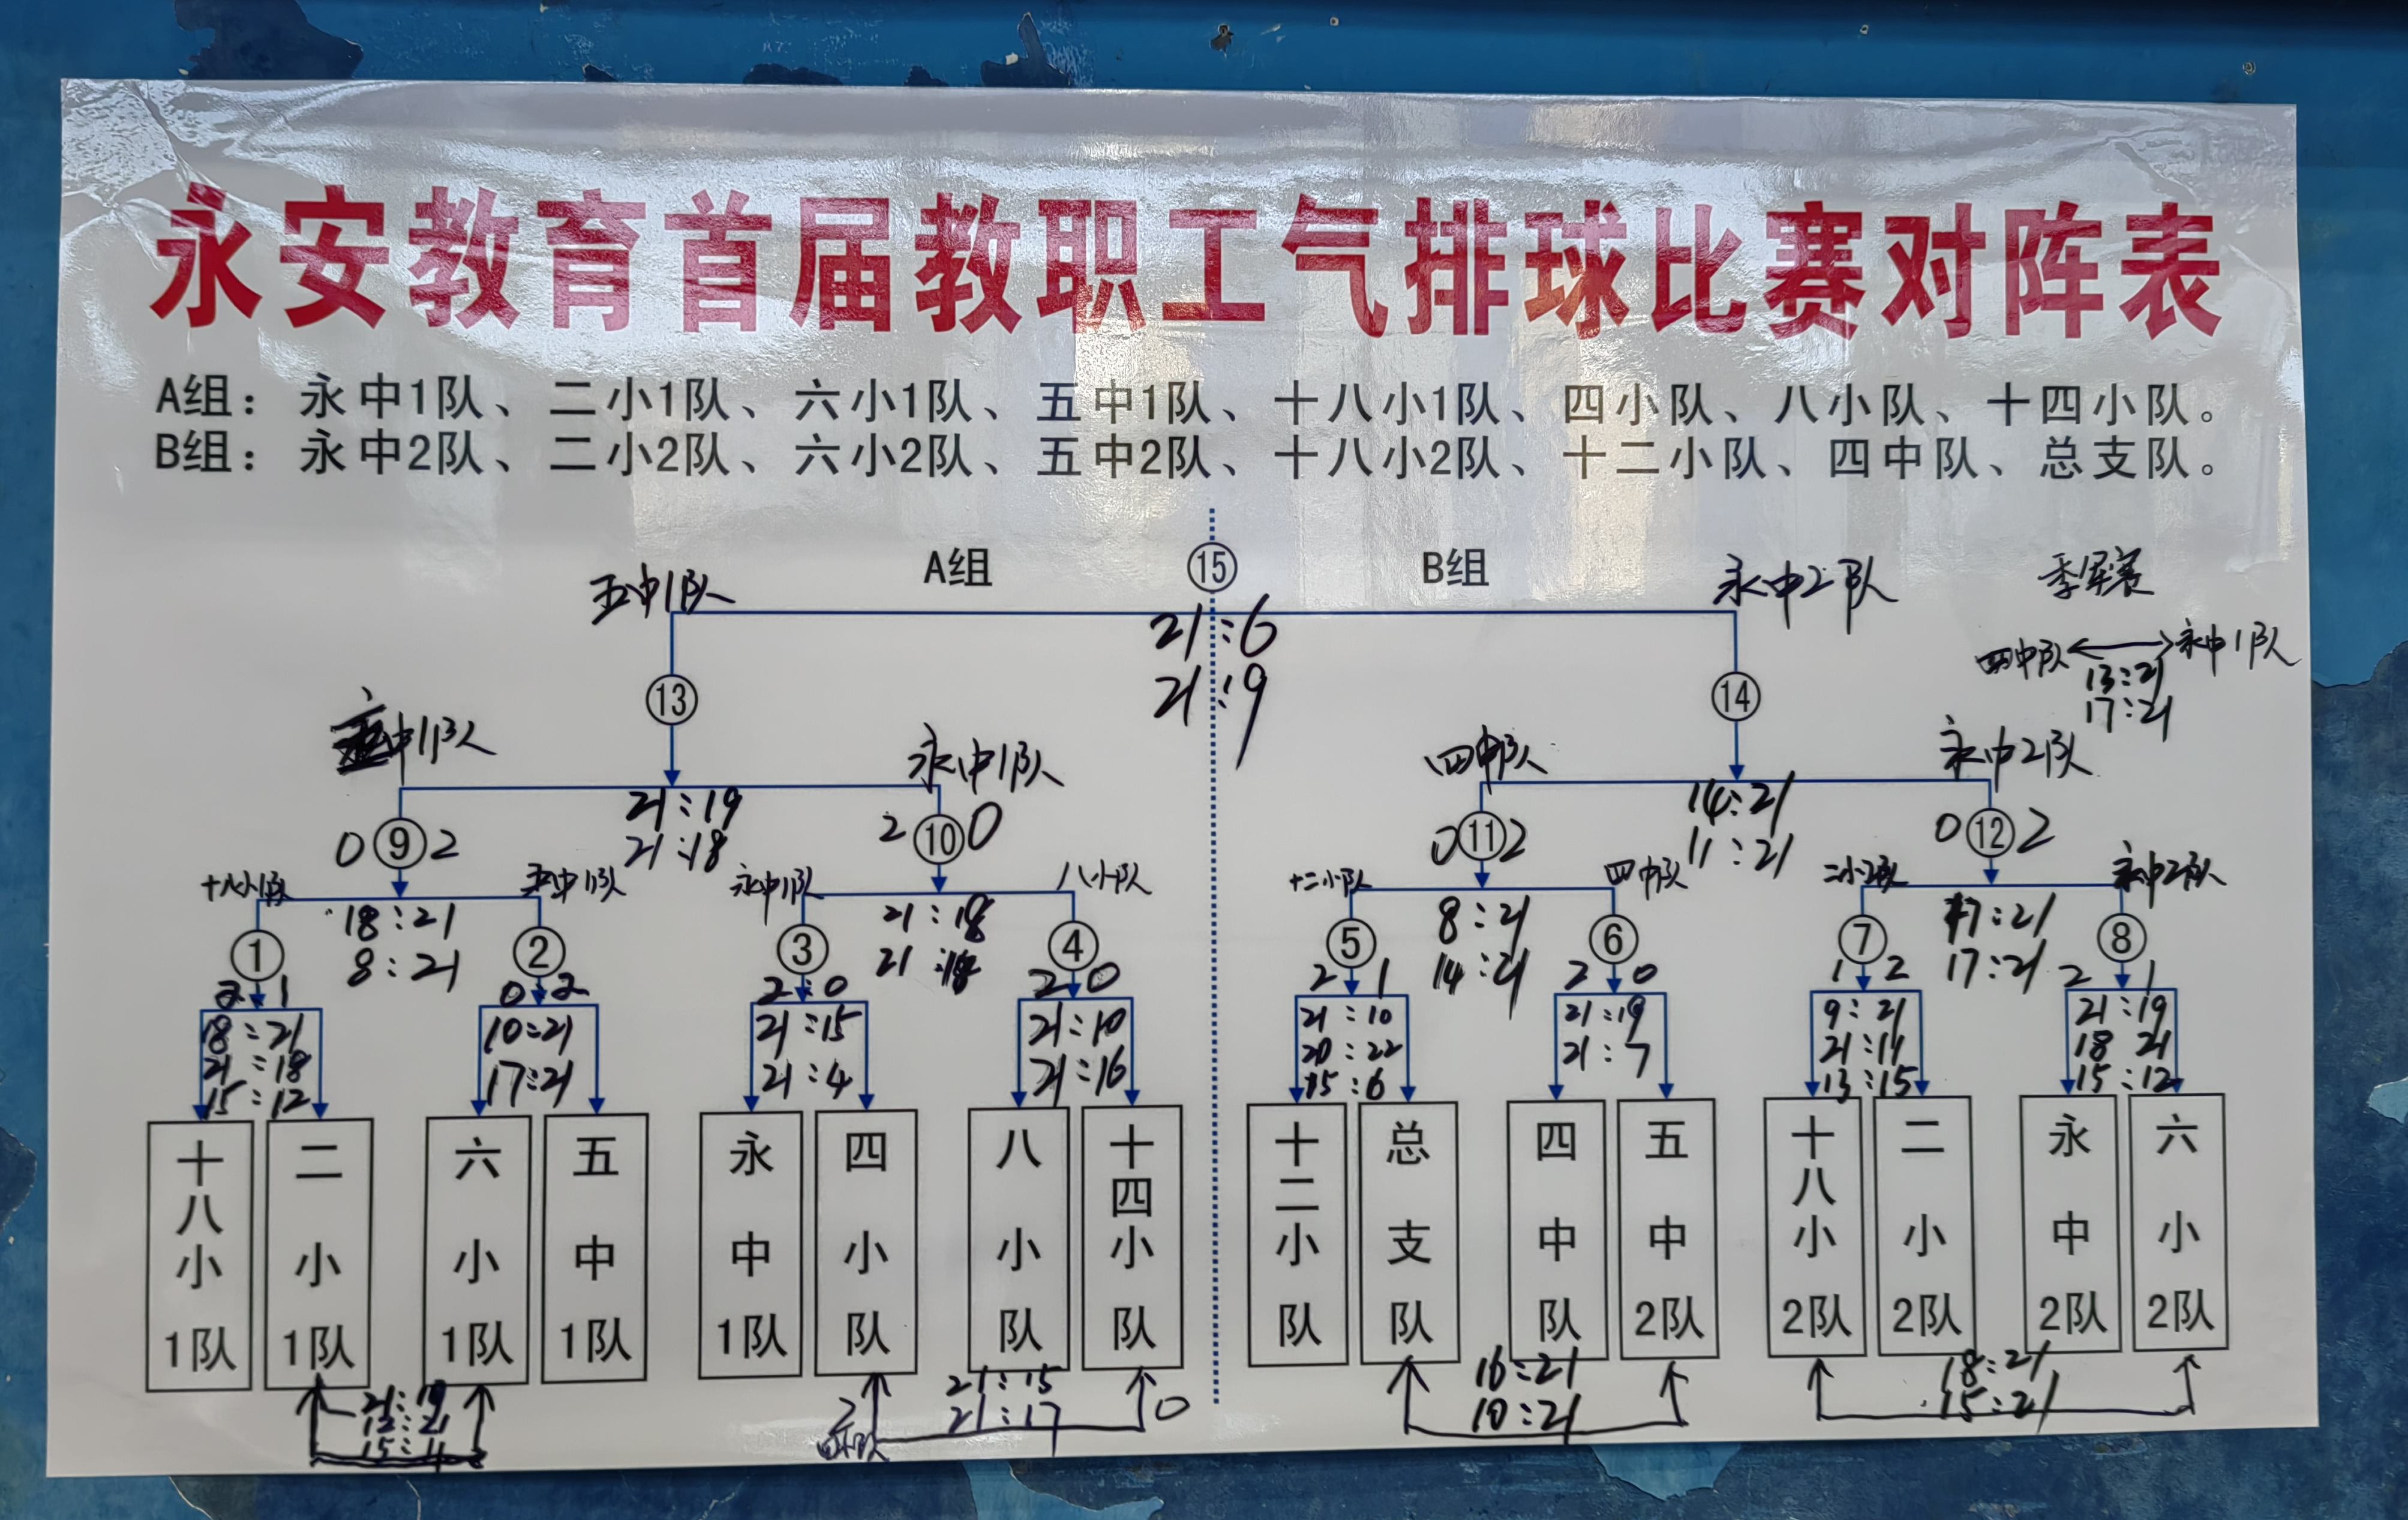 永安教育首届教职工气排球比赛对阵表
A组：永中1队、二小1队、六小1队、五中1队、十八小1队、四小队、八小队、十四小队。
B组：永中2队、二小2队、六小2队、五中2队、十八小2队、十二小队、四中队、总支队。
A组
⑮
B组
五中1队
永中2队
季军赛
21:6
21:9
四中队
永中1队
13:21
17:21
⑬
⑭
中1队
永中1队
四中队
永中2队
21:19
21:18
14:21
11:21
0 ⑨ 2
2 ⑩ 0
0 ⑪ 2
0 ⑫ 2
十八小1队
五中1队
永中1队
八小队
十二小队
四中队
二小2队
永中2队
18:21
8:21
21:18
21:
8:21
14:21
17:21
17:21
①
②
③
④
⑤
⑥
⑦
⑧
2:1
0:2
2:0
2 0
2 1
2 0
1 2
2 1
18:21
21:18
15:12
10:21
17:21
21:15
21:4
21:10
21:16
21:10
20:22
15:6
21:19
21:7
9:21
21:11
13:15
21:19
18 21
15:12
十八小1队
二小1队
六小1队
五中1队
永中1队
四小队
八小队
十四小队
十二小队
总支队
四中队
五中2队
十八小2队
二小2队
永中2队
六小2队
21:19
12:21
15:11
2
21:15
21:17
0
四小队
16:21
10:21
18:21
15:21